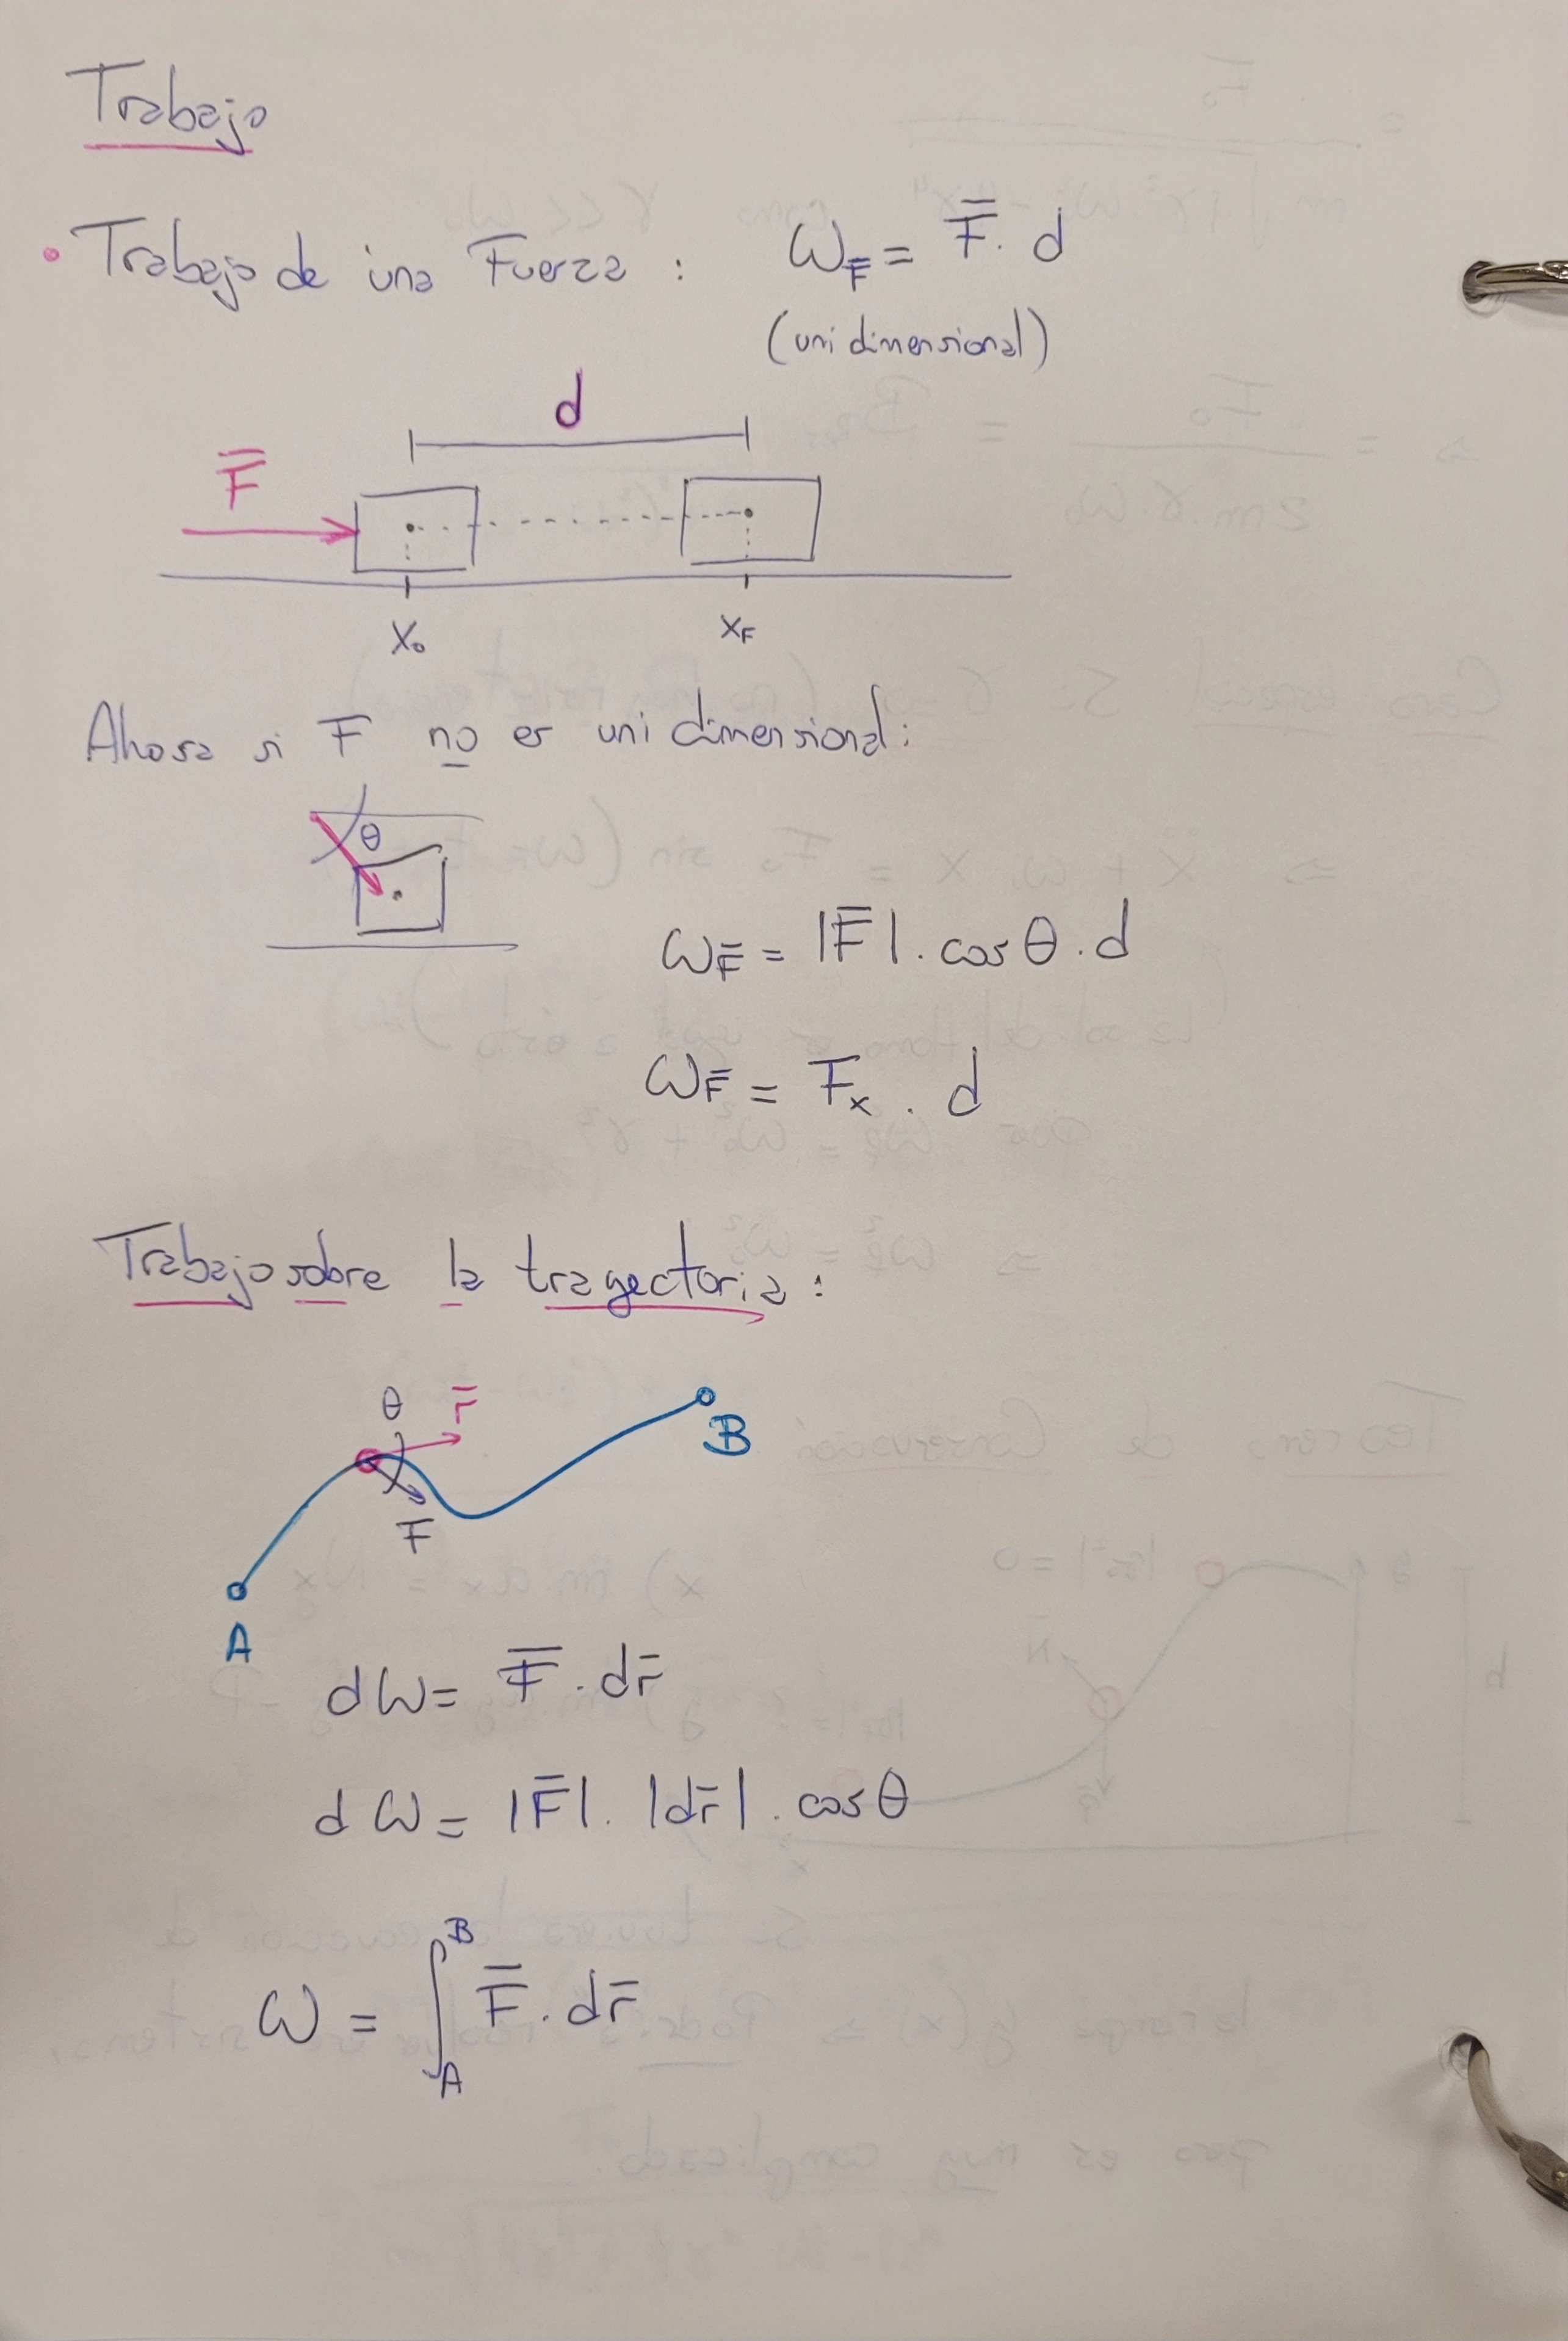 Trabajo
• Trabajo de una Fuerza : ω_F̄ = F̄ . d
(unidimensional)
d
F̄
x₀ x_F
Ahora si F no es unidimensional:
θ
ω_F̄ = |F̄| . cos θ . d
ω_F̄ = Fₓ . d
Trabajo sobre la trayectoria :
θ r̄
B
F
A
dω = F̄ . dr̄
dω = |F̄| . |dr̄| . cos θ
ω = ∫_A^B F̄ . dr̄